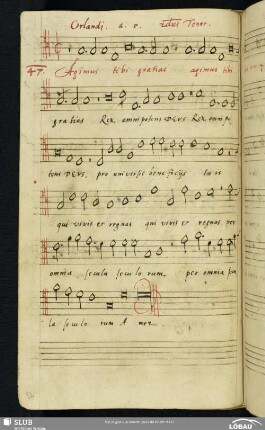 Orlandi. á. 5. 2dus Tenor.
47. Agimus tibi gratias agimus tibi
gratias Rex omnipotens DEUS Rex omnipo
tens DEUS. pro universis beneficijs tuis
qui vivis et regnas qui vivis et regnas. per
omnia secula seculo rum. per omnia secu
la seculo rum A men.
SLUB
LÖBAU